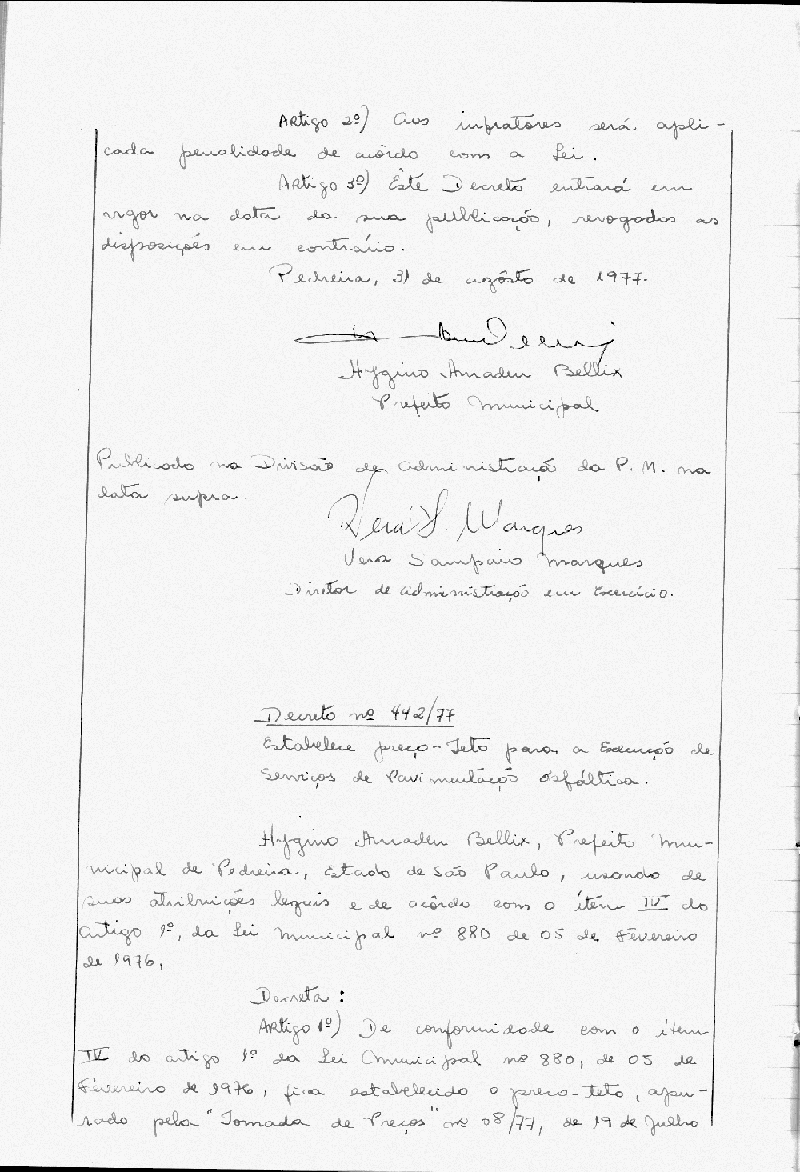 Artigo 2º) Aos infratores será apli-
cada penalidade de acôrdo com a Lei.
Artigo 3º) Êste Decreto entrará em
vigor na data da sua publicação, revogadas as
disposições em contrário.
Pedreira, 31 de agôsto de 1977.
Hygino Amadeu Bellix
Prefeito Municipal
Publicado na Divisão de Administração da P. M. na
data supra.
Vera S. Marques
Vera Sampaio Marques
Diretor de Administração em Exercício.
Decreto nº 442/77
Estabelece preço-Teto para a Execução de
Serviços de Pavimentação Asfáltica.
Hygino Amadeu Bellix, Prefeito Mu-
nicipal de Pedreira, Estado de São Paulo, usando de
suas atribuições legais e de acôrdo com o ítem IV do
artigo 1º, da Lei Municipal nº 880 de 05 de Fevereiro
de 1976,
Decreta:
Artigo 1º) De conformidade com o ítem
IV do artigo 1º da Lei Municipal nº 880, de 05 de
Fevereiro de 1976, fica estabelecido o preco-teto, apu-
rado pela "Tomada de Preços" nº 08/77, de 19 de Julho